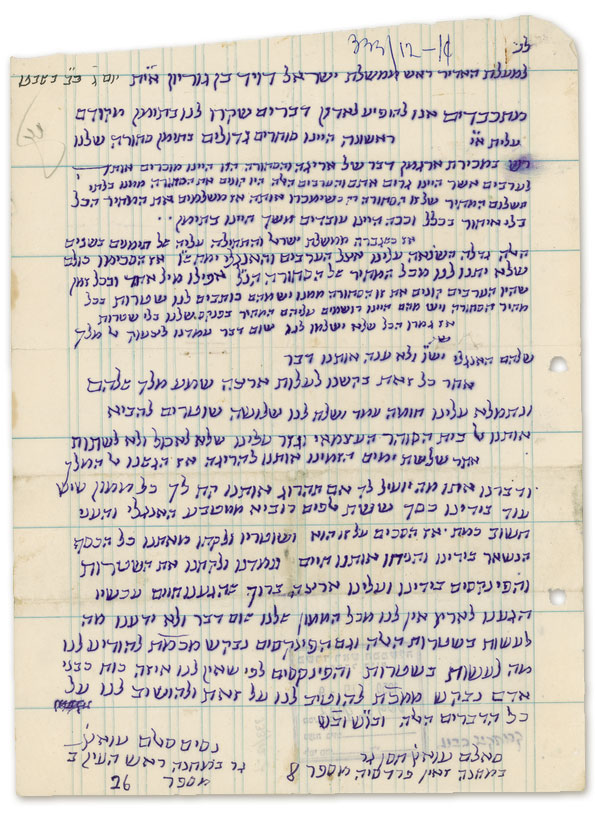 למעלת האדיר ראש ממשלת ישראל דויד בן גוריון
מתכבדים אנו להופיע לאדון דברים שקרו לנו בתימן מקודם
ראשונה היינו סוחרים גדולים בתימן סחורה שלנו
במכירת ארגמן דבר של אריגה והסחורה הזו היינו מוכרים אותה
לערבים אשר היינו גרים אתם והערבים האלה היו קונים את הסחורה ממנו בלתי
תשלום המחיר של זו הסחורה אותה אז משלמים את המחיר הכל
בלי איחור בכלל וככה היינו עובדים משך היינו בתימן
אז כשגברה ממשלת ישראל והתחילה עליה של תימנים בשנים
האלה גדלה השנאה עלינו אצל הערבים אז הסכימו כולם
שלא יתנו לנו מכל המחיר של הסחורה הנ"ל אפילו מיל אחד ובכל זמן
שהיו הערבים קונים את זו הסחורה ממנו יש מהם כותבים לנו שטרות בכל
מחיר הסחורה ויש מהם היינו רושמים עליהם המחיר בפנקס שלנו בלי שטרות
אז גמרו הכל שלא ישלמו לנו שום דבר עמדנו לצעוק מלך
שלהם ולא ענה אותנו דבר
אחר כל זאת בקשנו לעלות ארצה שמע מלך שלהם
ונתמלא עלינו חומה עמד ושלח לנו שלושה שוטרים להביא
אותנו בית הסוהר העצמאי וגזר עלינו שלא לאכול ולא לשתות
אחר שלשת ימים הזמינו אותנו להריגה אז הגענו המלך
ודברנו אתו מה יועיל לך אם תהרוג אותנו קח לך כל ממון שיש
עוד בידינו בסך ששת אלפים רוביא ממטבע
חשוב כמת אז הסכים על זו הוא ושוטריו ולקחו מאתנו כל הכסף
הנשאר בידינו והניחו אותנו חיים ועמדנו ולקחנו את השטרות
והפינקסים בידינו ועלינו ארצה ברוך עכשיו
הגענו לארץ אין לנו מכל הממון שלנו שום דבר ולא ידענו מה
לעשות בשטרות האלה וגם הפינקסים נבקש להודיע לנו
מה לעשות בשטרות והפינקסים לפי שאין לנו איזה כוח כבני
אדם נבקש להוטיב לנו על זאת ולהושיב לנו על
כל הדברים האלה
נסים סאלם עואץ
סאלם עואץ חסן גר
גר במחנה ראש העין ב
מספר 26
במחנה פרדסיה מספר 8